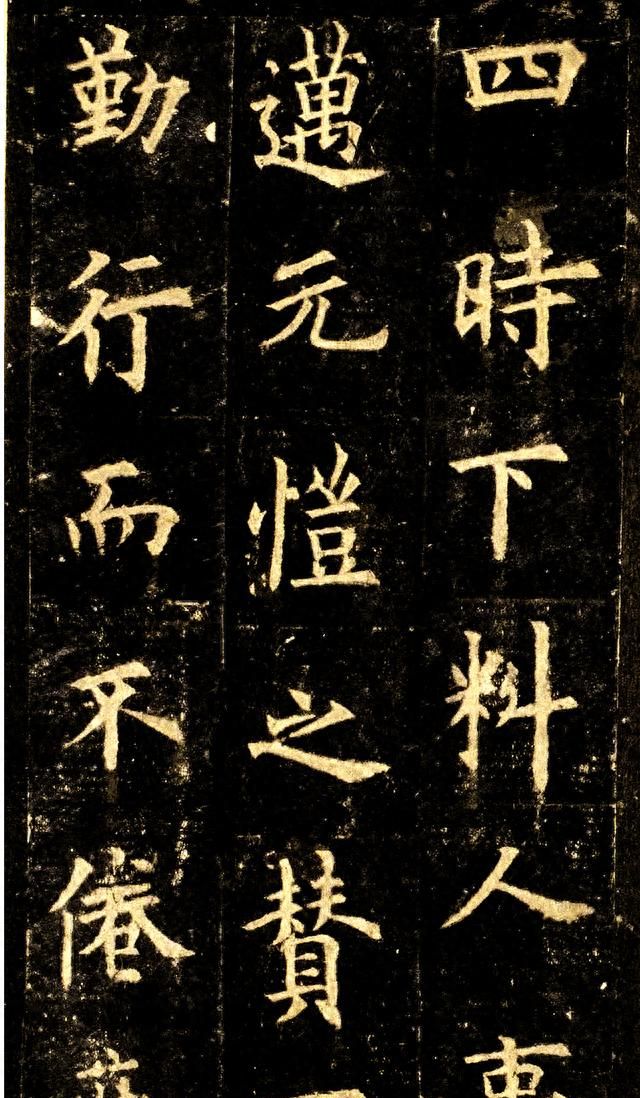 四時下料人
邁元愷之贊
勤行而不倦